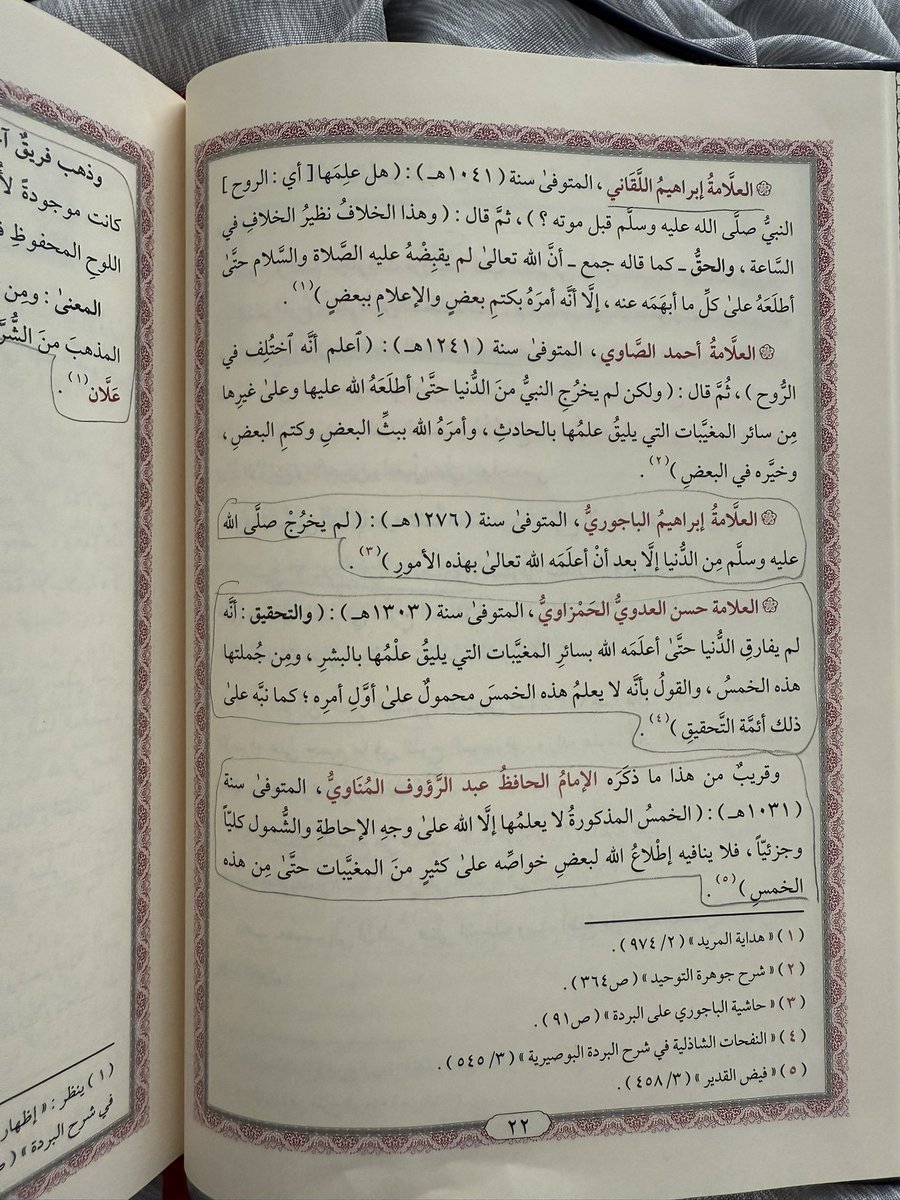 العلَّامةُ إبراهيمُ اللَّقَاني ، المتوفىٰ سنة ( ١٠٤١هـ ) : ( هل علِمَها [ أي : الروح ]
النبيُّ صلَّى الله عليه وسلَّم قبل موته ؟ ) ، ثمَّ قال : ( وهذا الخلافُ نظيرُ الخلافِ في
السَّاعة ، والحقُّ ـ كما قاله جمع ـ أنَّ الله تعالىٰ لم يقبِضْهُ عليه الصَّلاة والسَّلام حتَّىٰ
أطلَعَهُ علىٰ كلِّ ما أبهَمَه عنه ، إلَّا أنَّه أمرَهُ بكتمِ بعضٍ والإعلامِ ببعضٍ )(١) .
العلَّامةُ أحمد الصَّاوي ، المتوفىٰ سنة ( ١٢٤١هـ ) : ( ٱعلم أنَّه ٱختُلِف في
الرُّوح ) ، ثُمَّ قال : ( ولكن لم يخرُجِ النبيُّ منَ الدُّنيا حتَّىٰ أطلَعَهُ الله عليها وعلىٰ غيرِها
مِن سائر المغيَّبات التي يليقُ علمُها بالحادثِ ، وأمرَهُ الله ببثِّ البعضِ وكتمِ البعضِ ،
وخيَّره في البعضِ )(٢) .
العلَّامةُ إبراهيمُ الباجوريُّ ، المتوفىٰ سنة ( ١٢٧٦هـ ) : ( لم يخرُجْ صلَّى الله
عليه وسلَّم مِن الدُّنيا إلَّا بعد أنْ أعلَمَه الله تعالىٰ بهذه الأمورِ )(٣) .
العلامة حسن العدويُّ الحَمْزاويُّ ، المتوفىٰ سنة ( ١٣٠٣هـ ) : ( والتحقيق : أنَّه
لم يفارقِ الدُّنيا حتَّىٰ أعلَمَه الله بسائرِ المغيَّبات التي يليقُ علْمُها بالبشرِ ، ومِن جُملتها
هذه الخمسُ ، والقولُ بأنَّه لا يعلمُ هذه الخمسَ محمولٌ علىٰ أوَّلِ أمرِه ؛ كما نبَّه علىٰ
ذلك أئمَّة التَّحقيقِ )(٤) .
وقريبٌ من هذا ما ذكَرَه الإمامُ الحافظُ عبد الرَّؤوف المُنَاويُّ ، المتوفىٰ سنة
( ١٠٣١هـ ) : ( الخمسُ المذكورةُ لا يعلمُها إلَّا الله علىٰ وجهِ الإحاطةِ والشُّمول كليّاً
وجزئيّاً ، فلا ينافيه إطْلاعُ الله لبعضِ خواصِّه علىٰ كثيرٍ منَ المغيَّبات حتَّىٰ مِن هذه
الخمسِ )(٥) .
( ١ ) « هداية المريد » ( ٢/ ٩٧٤ ) .
( ٢ ) « شرح جوهرة التوحيد » ( ص٣٦٤ ) .
( ٣ ) « حاشية الباجوري على البردة » ( ص٩١ ) .
( ٤ ) « النفحات الشاذلية في شرح البردة البوصيرية » ( ٣/ ٥٤٥ ) .
( ٥ ) « فيض القدير » ( ٣/ ٤٥٨ ) .
٢٢
وذهب فريقٌ
كانت موجودةً
اللوحِ المحفوظِ
المعنىٰ : ومِن
المذهبَ منَ
عَلَّان (١) .
( ١ ) ينظر : « إظهار
في شرح البردة » (